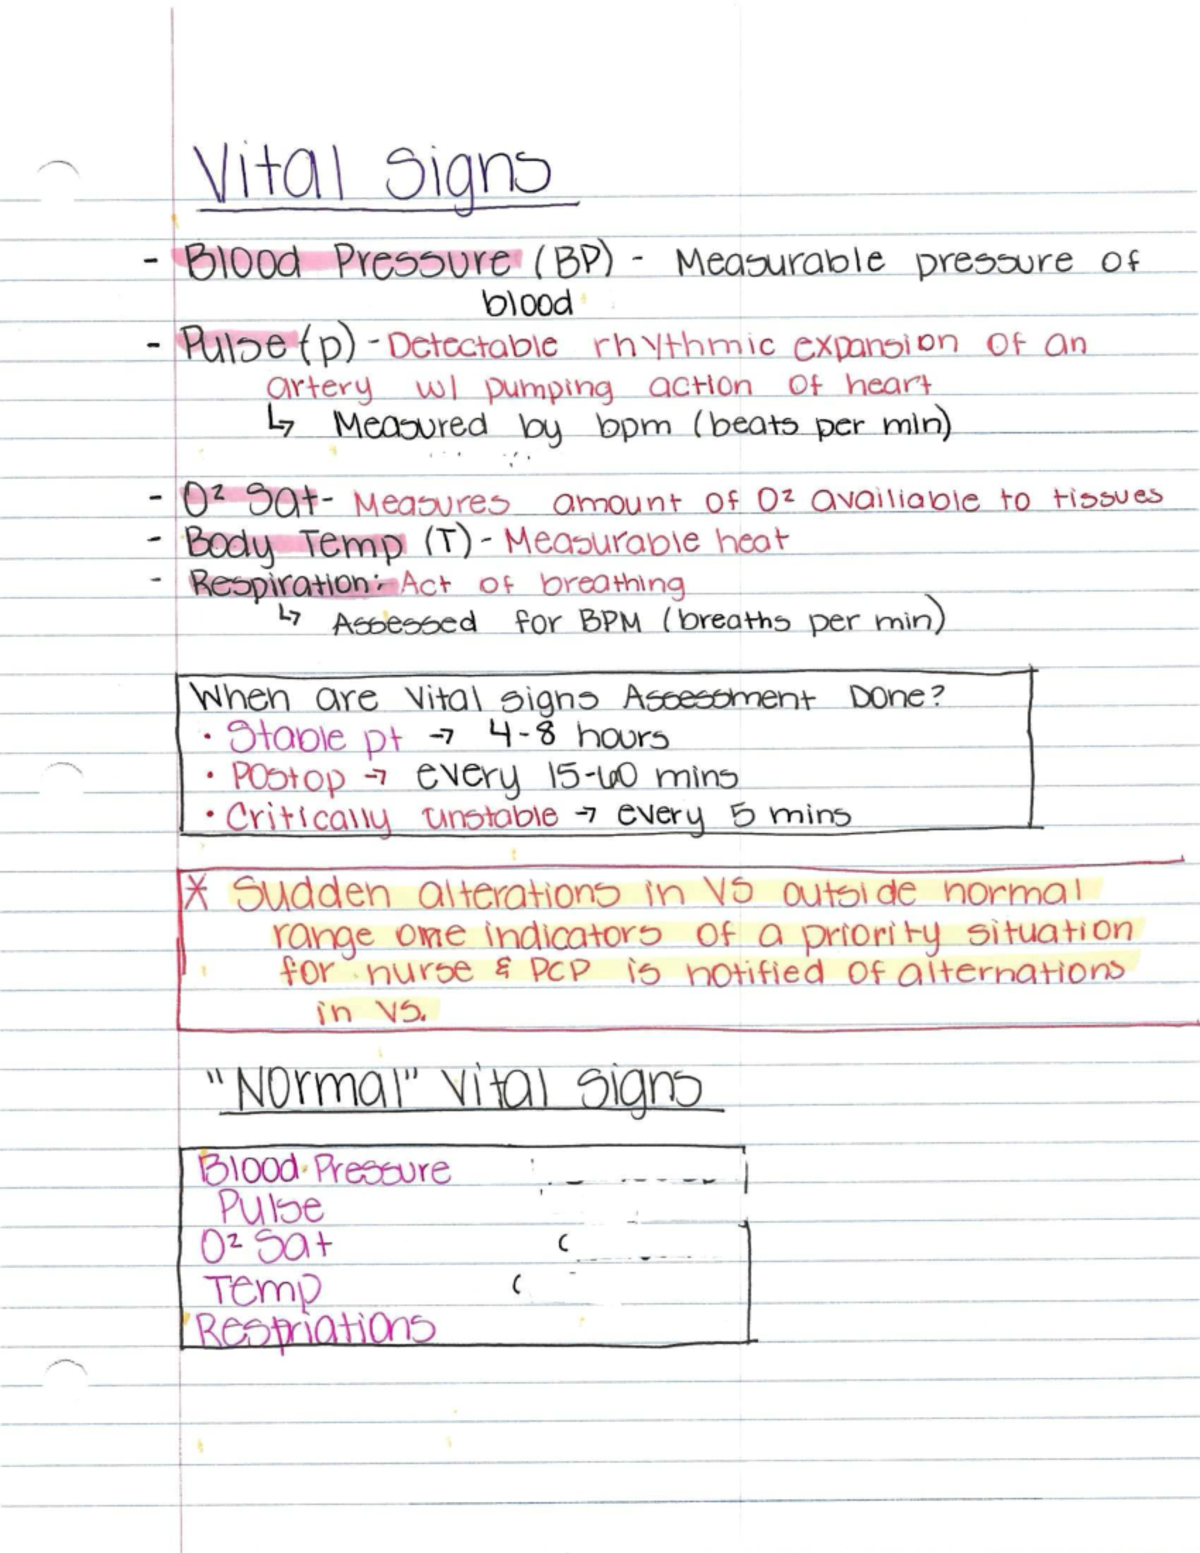 Vital Signs
- Blood Pressure (BP) - Measurable pressure of
blood
- Pulse (p) - Detectable rhythmic expansion of an
artery w/ pumping action of heart
↳ Measured by bpm (beats per min)
- O² Sat- Measures amount of O² availiable to tissues
- Body Temp (T) - Measurable heat
- Respiration: Act of breathing
↳ Assessed for BPM (breaths per min)
When are Vital signs Assessment Done?
• Stable pt → 4-8 hours
• Postop → every 15-60 mins
• Critically unstable → every 5 mins
* Sudden alterations in VS outside normal
range one indicators of a priority situation
for nurse & PCP is notified of alternations
in VS.
"Normal" Vital Signs
Blood Pressure
Pulse
O² Sat
Temp
Respriations